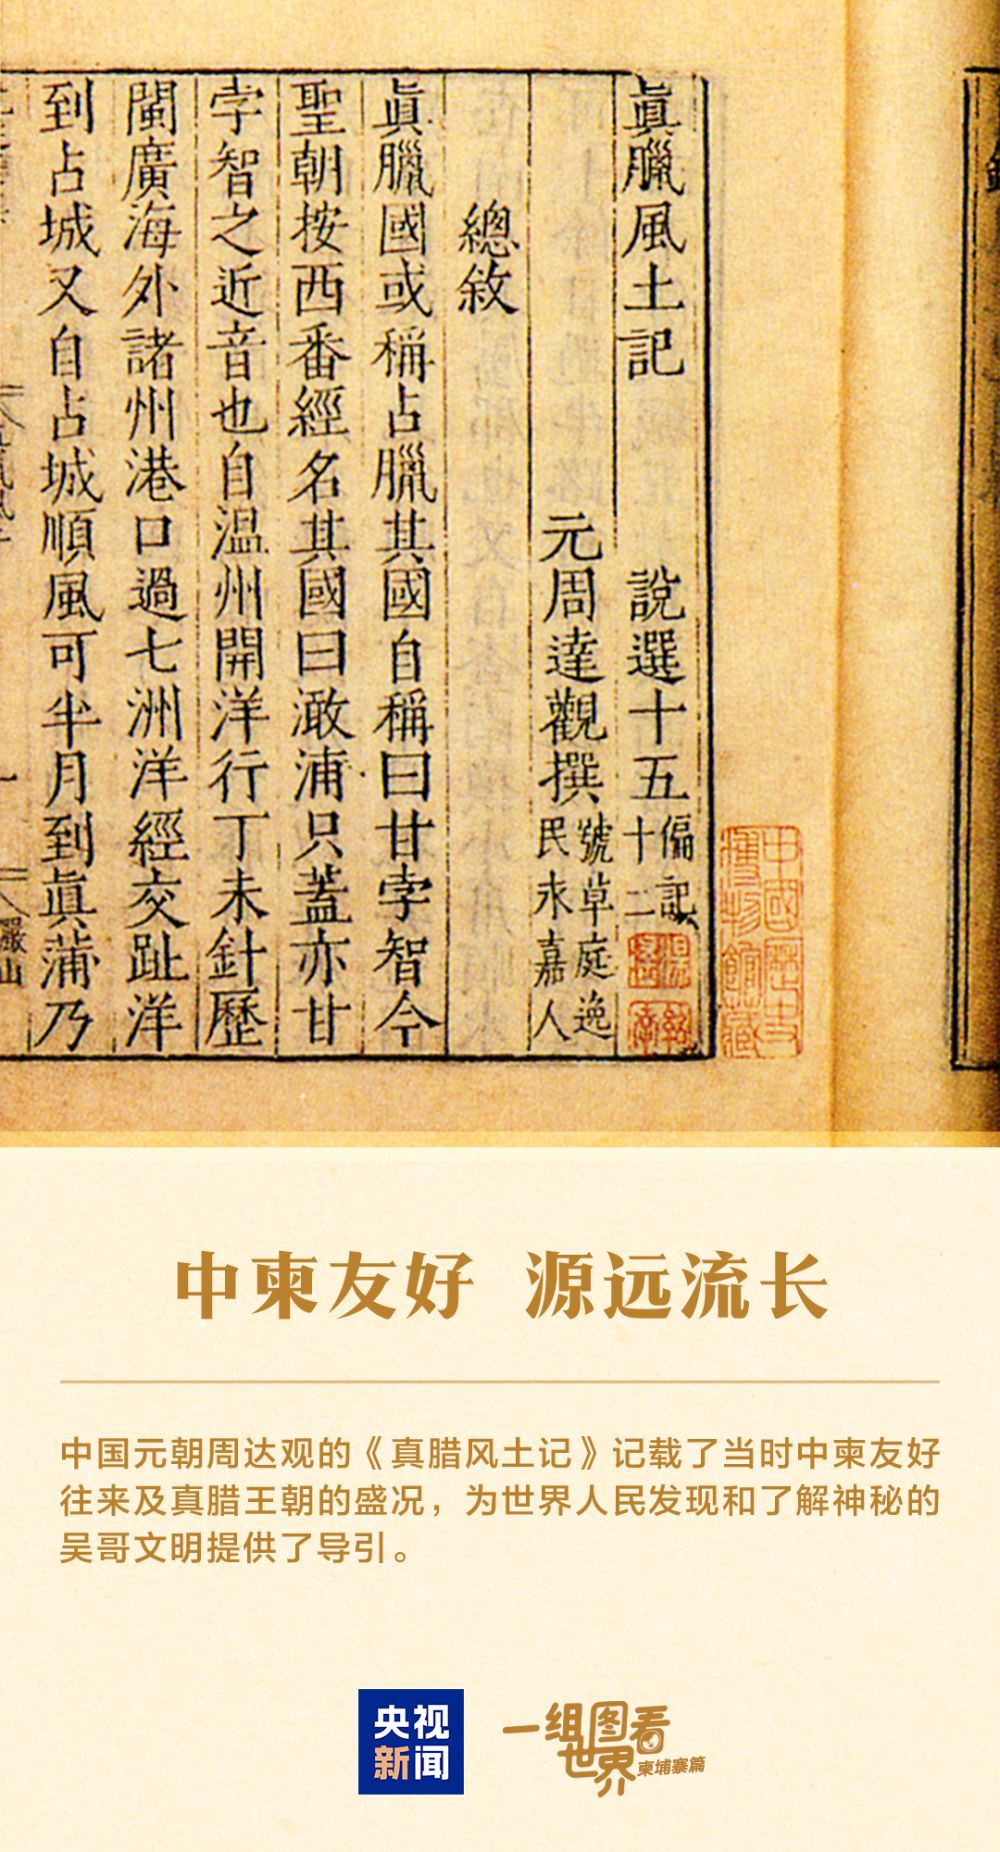 眞臘風土記 說選十五 偏記
十二
元周達觀撰 號草庭逸
民永嘉人
總敘
眞臘國或稱占臘其國自稱曰甘孛智今
聖朝按西番經名其國曰澉浦只蓋亦甘
孛智之近音也自溫州開洋行丁未針歷
閩廣海外諸州港口過七洲洋經交趾洋
到占城又自占城順風可半月到眞蒲乃
中國歷史
博物館藏
中柬友好 源远流长
中国元朝周达观的《真腊风土记》记载了当时中柬友好
往来及真腊王朝的盛况，为世界人民发现和了解神秘的
吴哥文明提供了导引。
央视
新闻
一组图看
世界
柬埔寨篇